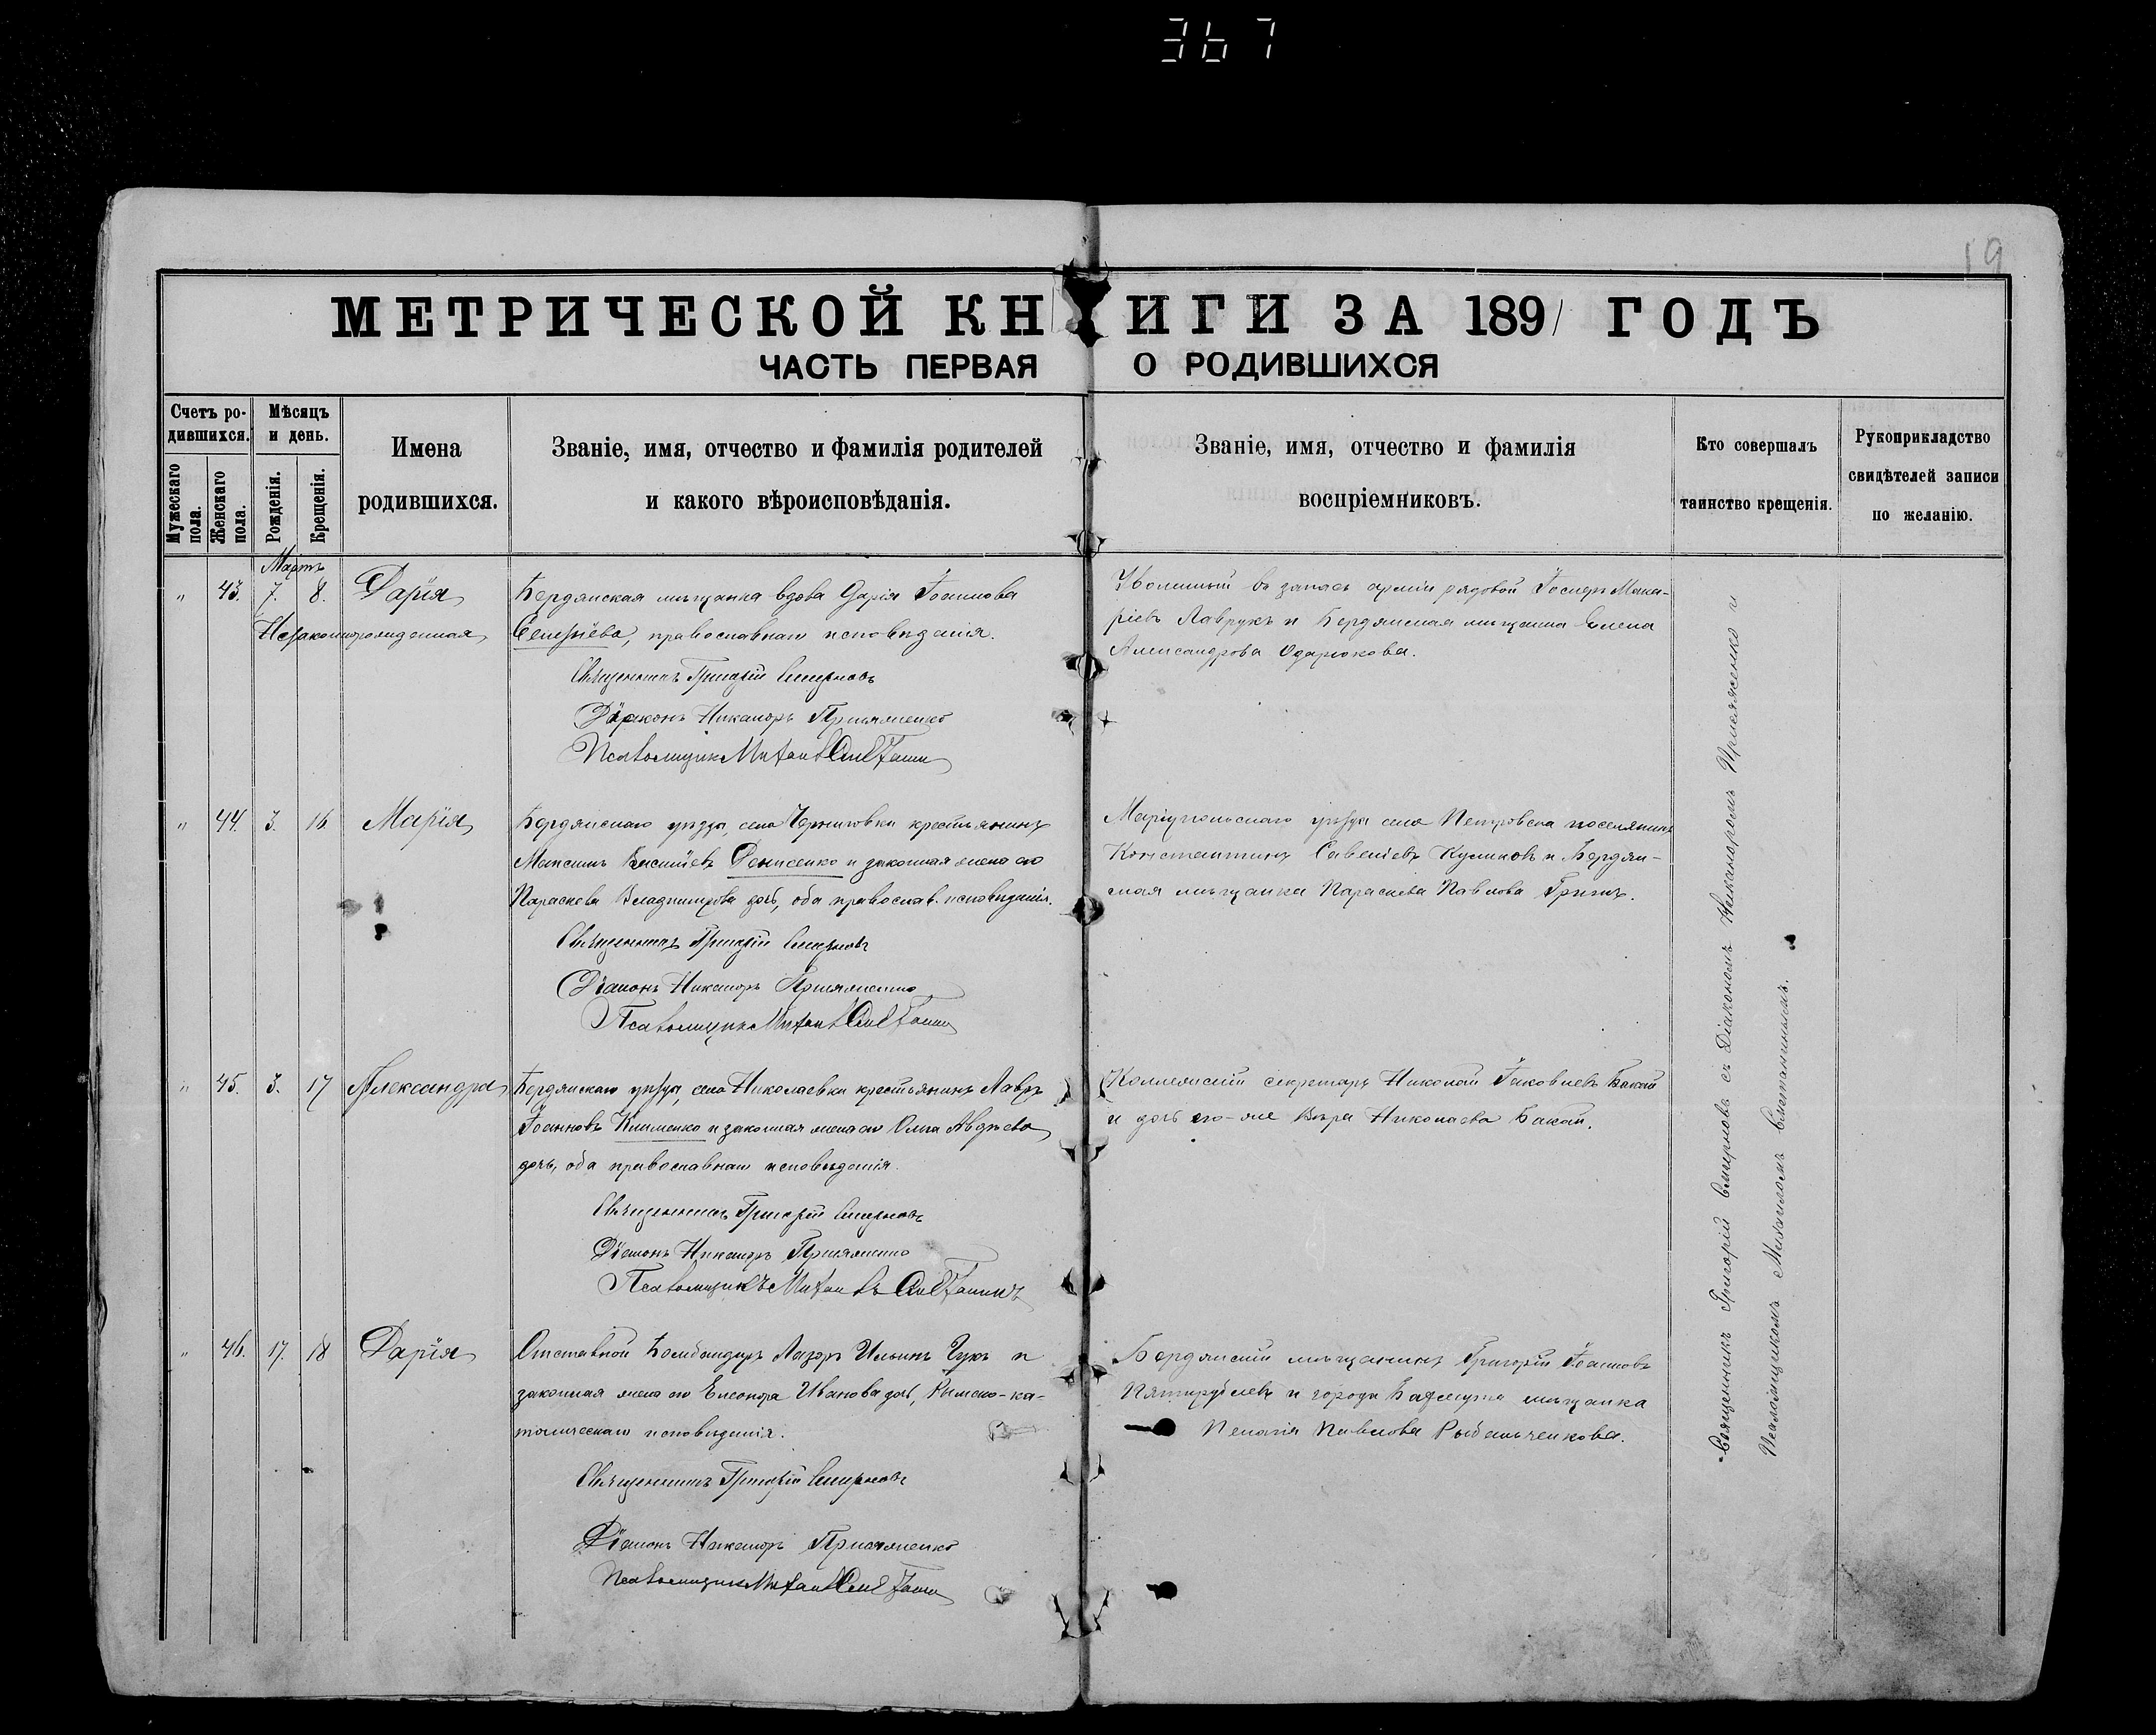 367
19
МЕТРИЧЕСКОЙ КНИГИ ЗА 1891 ГОДЪ
ЧАСТЬ ПЕРВАЯ О РОДИВШИХСЯ
Счетъ ро-
дившихся.
Мужескаго пола.
Женскаго пола.
Мѣсяцъ
и день.
Рожденія.
Крещенія.
Имена
родившихся.
Званіе, имя, отчество и фамилія родителей
и какого вѣроисповѣданія.
Званіе, имя, отчество и фамилія
воспріемниковъ.
Кто совершалъ
таинство крещенія.
Рукоприкладство
свидѣтелей записи
по желанію.
Мартъ
" 43. 7. 8. Дарія
Незаконнорожденная
Бердянская мѣщанка вдова Дарія Іоаннова
православнаго исповѣданія.
Священникъ Григорій Смирновъ
Діаконъ Никаноръ Присяженко
Псаломщикъ Михаилъ
Уволенный въ запасъ арміи рядовой Іосифъ Мака-
ріевъ Лаврукъ и Бердянская мѣщанка Елена
Александрова Одарюкова.
" 44. 3. 16 Марія
Бердянскаго уѣзда, села Черниговки крестьянинъ
Максимъ Денисенко и законная жена его
Параскева Владимирова дочь, оба православ. исповѣданія.
Священникъ Григорій Смирновъ
Діаконъ Никаноръ Присяженко
Псаломщикъ Михаилъ
Маріупольскаго уѣзда села Петровска поселянинъ
Константинъ Савеліевъ Куликовъ и Бердян-
ская мѣщанка Параскева Павлова
" 45. 3. 17 Александра
Бердянскаго уѣзда, села Николаевки крестьянинъ Лавръ
Іоанновъ Клименко и законная жена его Ольга Авдѣева
дочь, оба православнаго исповѣданія.
Священникъ Григорій Смирновъ
Діаконъ Никаноръ Присяженко
Псаломщикъ Михаилъ
Коллежскій секретарь Николай Іаковлевъ Бакай
и дочь его-же Вѣра Николаева Бакай.
" 46. 17. 18 Дарія
Отставной Бомбандиръ Лазарь Ильинъ Чукъ и
законная жена его Елеонора Иванова дочь, Римско-ка-
толическаго исповѣданія.
Священникъ Григорій Смирновъ
Діаконъ Никаноръ Присяженко
Псаломщикъ Михаилъ
Бердянскій мѣщанинъ Григорій Іоанновъ
Пятирублевъ и города Бахмута мѣщанка
Пелагія Павлова Рыбальченкова.
Священникъ Григорій Смирновъ съ Діакономъ Никаноромъ Присяженко и
Псаломщикомъ Михаиломъ